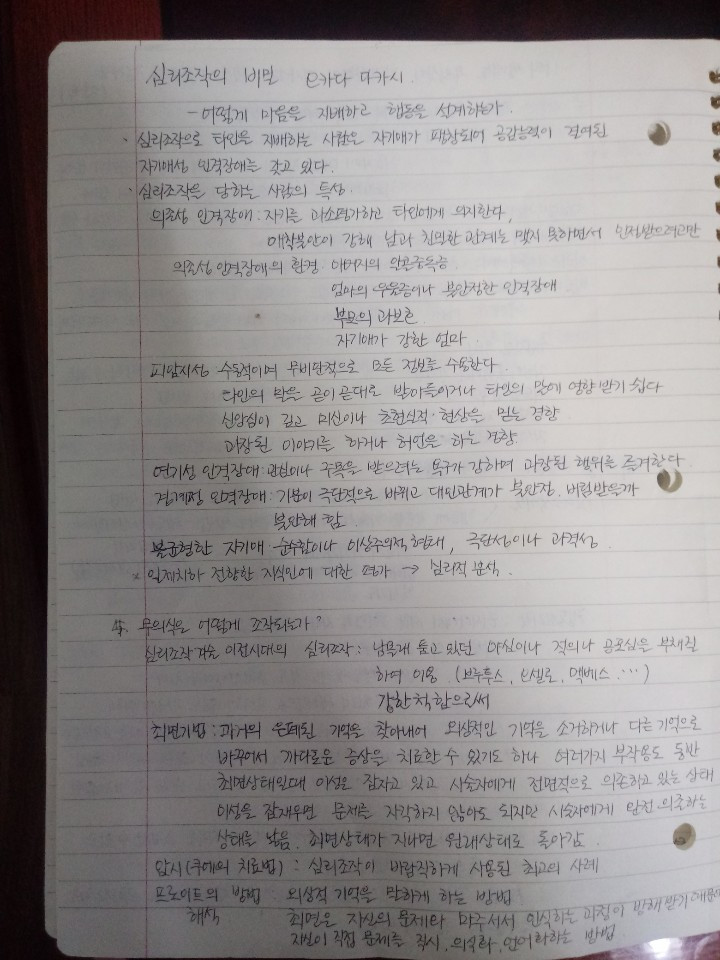 심리조작의 비밀 오카다 다카시.
- 어떻게 마음을 지배하고 행동을 설계하는가.
· 심리조작으로 타인을 지배하는 사람은 자기애가 팽창되어 공감능력이 결여된
자기애성 인격장애를 갖고 있다.
· 심리조작을 당하는 사람의 특성.
의존성 인격장애 : 자기를 과소평가하고 타인에게 의지한다,
애착불안이 강해 남과 친밀한 관계는 맺지 못하면서 인정받으려고만
의존성 인격장애의 환경 : 아버지의 알콜중독증
엄마의 우울증이나 불안정한 인격장애
부모의 과보호
자기애가 강한 엄마.
피암시성 수동적이며 무비판적으로 모든 정보를 수용한다.
타인의 말을 곧이 곧대로 받아들이거나 타인의 말에 영향받기 쉽다
신앙심이 깊고 미신이나 초현실적 현상을 믿는 경향
과장된 이야기를 하거나 허언을 하는 경향
연기성 인격장애 : 관심이나 주목을 받으려는 욕구가 강하며 과장된 행위를 즐겨한다.
경계성 인격장애 : 기분이 극단적으로 바뀌고 대인관계가 불안정. 버림받을까
불안해 함.
불균형한 자기애 순수함이나 이상주의적 형태, 극단성이나 과격성.
× 일제치하 전향한 지식인에 대한 평가 → 심리적 분석.
4. 무의식을 어떻게 조작되는가?
심리조작 기술 이전시대의 심리조작 : 남몰래 품고 있던 야심이나 적의나 공포심을 부채질
하여 이용. (브루투스, 오셀로, 맥베스 …)
강한척함으로써
최면기법 : 과거의 은폐된 기억을 찾아내어 외상적인 기억을 소거하거나 다른 기억으로
바꾸어서 까다로운 증상을 치료한 수 있기도 하나 여러가지 부작용도 동반
최면상태일때 이성은 잠자고 있고 시술자에게 전면적으로 의존하고 있는 상태
이성을 잠재우면 문제를 자각하지 않아도 되지만 시술자에게 완전 의존하는
상태를 낳음. 최면상태가 지나면 원래상태로 돌아감.
암시(쿠에의 치료법) : 심리조작이 바람직하게 사용된 최고의 사례
프로이트의 방법 : 외상적 기억을 말하게 하는 방법
해석 최면은 자신의 문제와 마주서서 인식하는 과정이 방해받기 때문에
자신이 직접 문제를 직시, 의식화, 언어화하는 방법